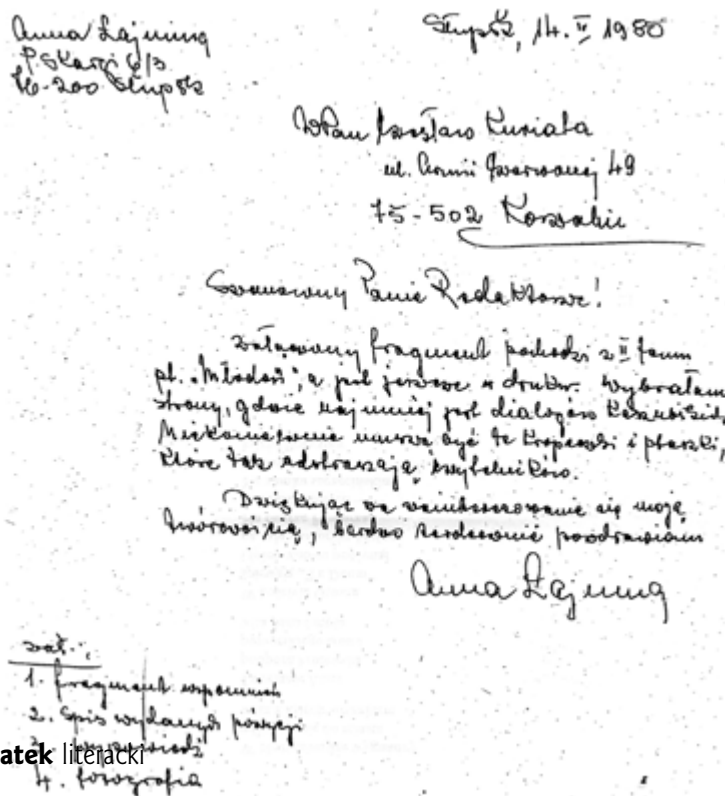 Anna Łajming
P. Skargi 6/3
76-200 Słupsk
Słupsk, 14. II 1980
WPan Czesław Kuriata
ul. Armii Czerwonej 49
75-502 Koszalin
Szanowny Panie Redaktorze!
Załączony fragment pochodzi z II tomu
pt. „Młodość", a jest jeszcze w druku. Wybrałam
strony, gdzie najmniej jest dialogów kaszubskich.
Niekoniecznie muszą być te kropeczki i ptaszki,
które tak odstraszają czytelników.
Dziękując za zainteresowanie się moją
twórczością, bardzo serdecznie pozdrawiam
Anna Łajming
zał.:
1. fragment wspomnień
2. Spis wydanych pozycji
3.
atek literacki
4. fotografia